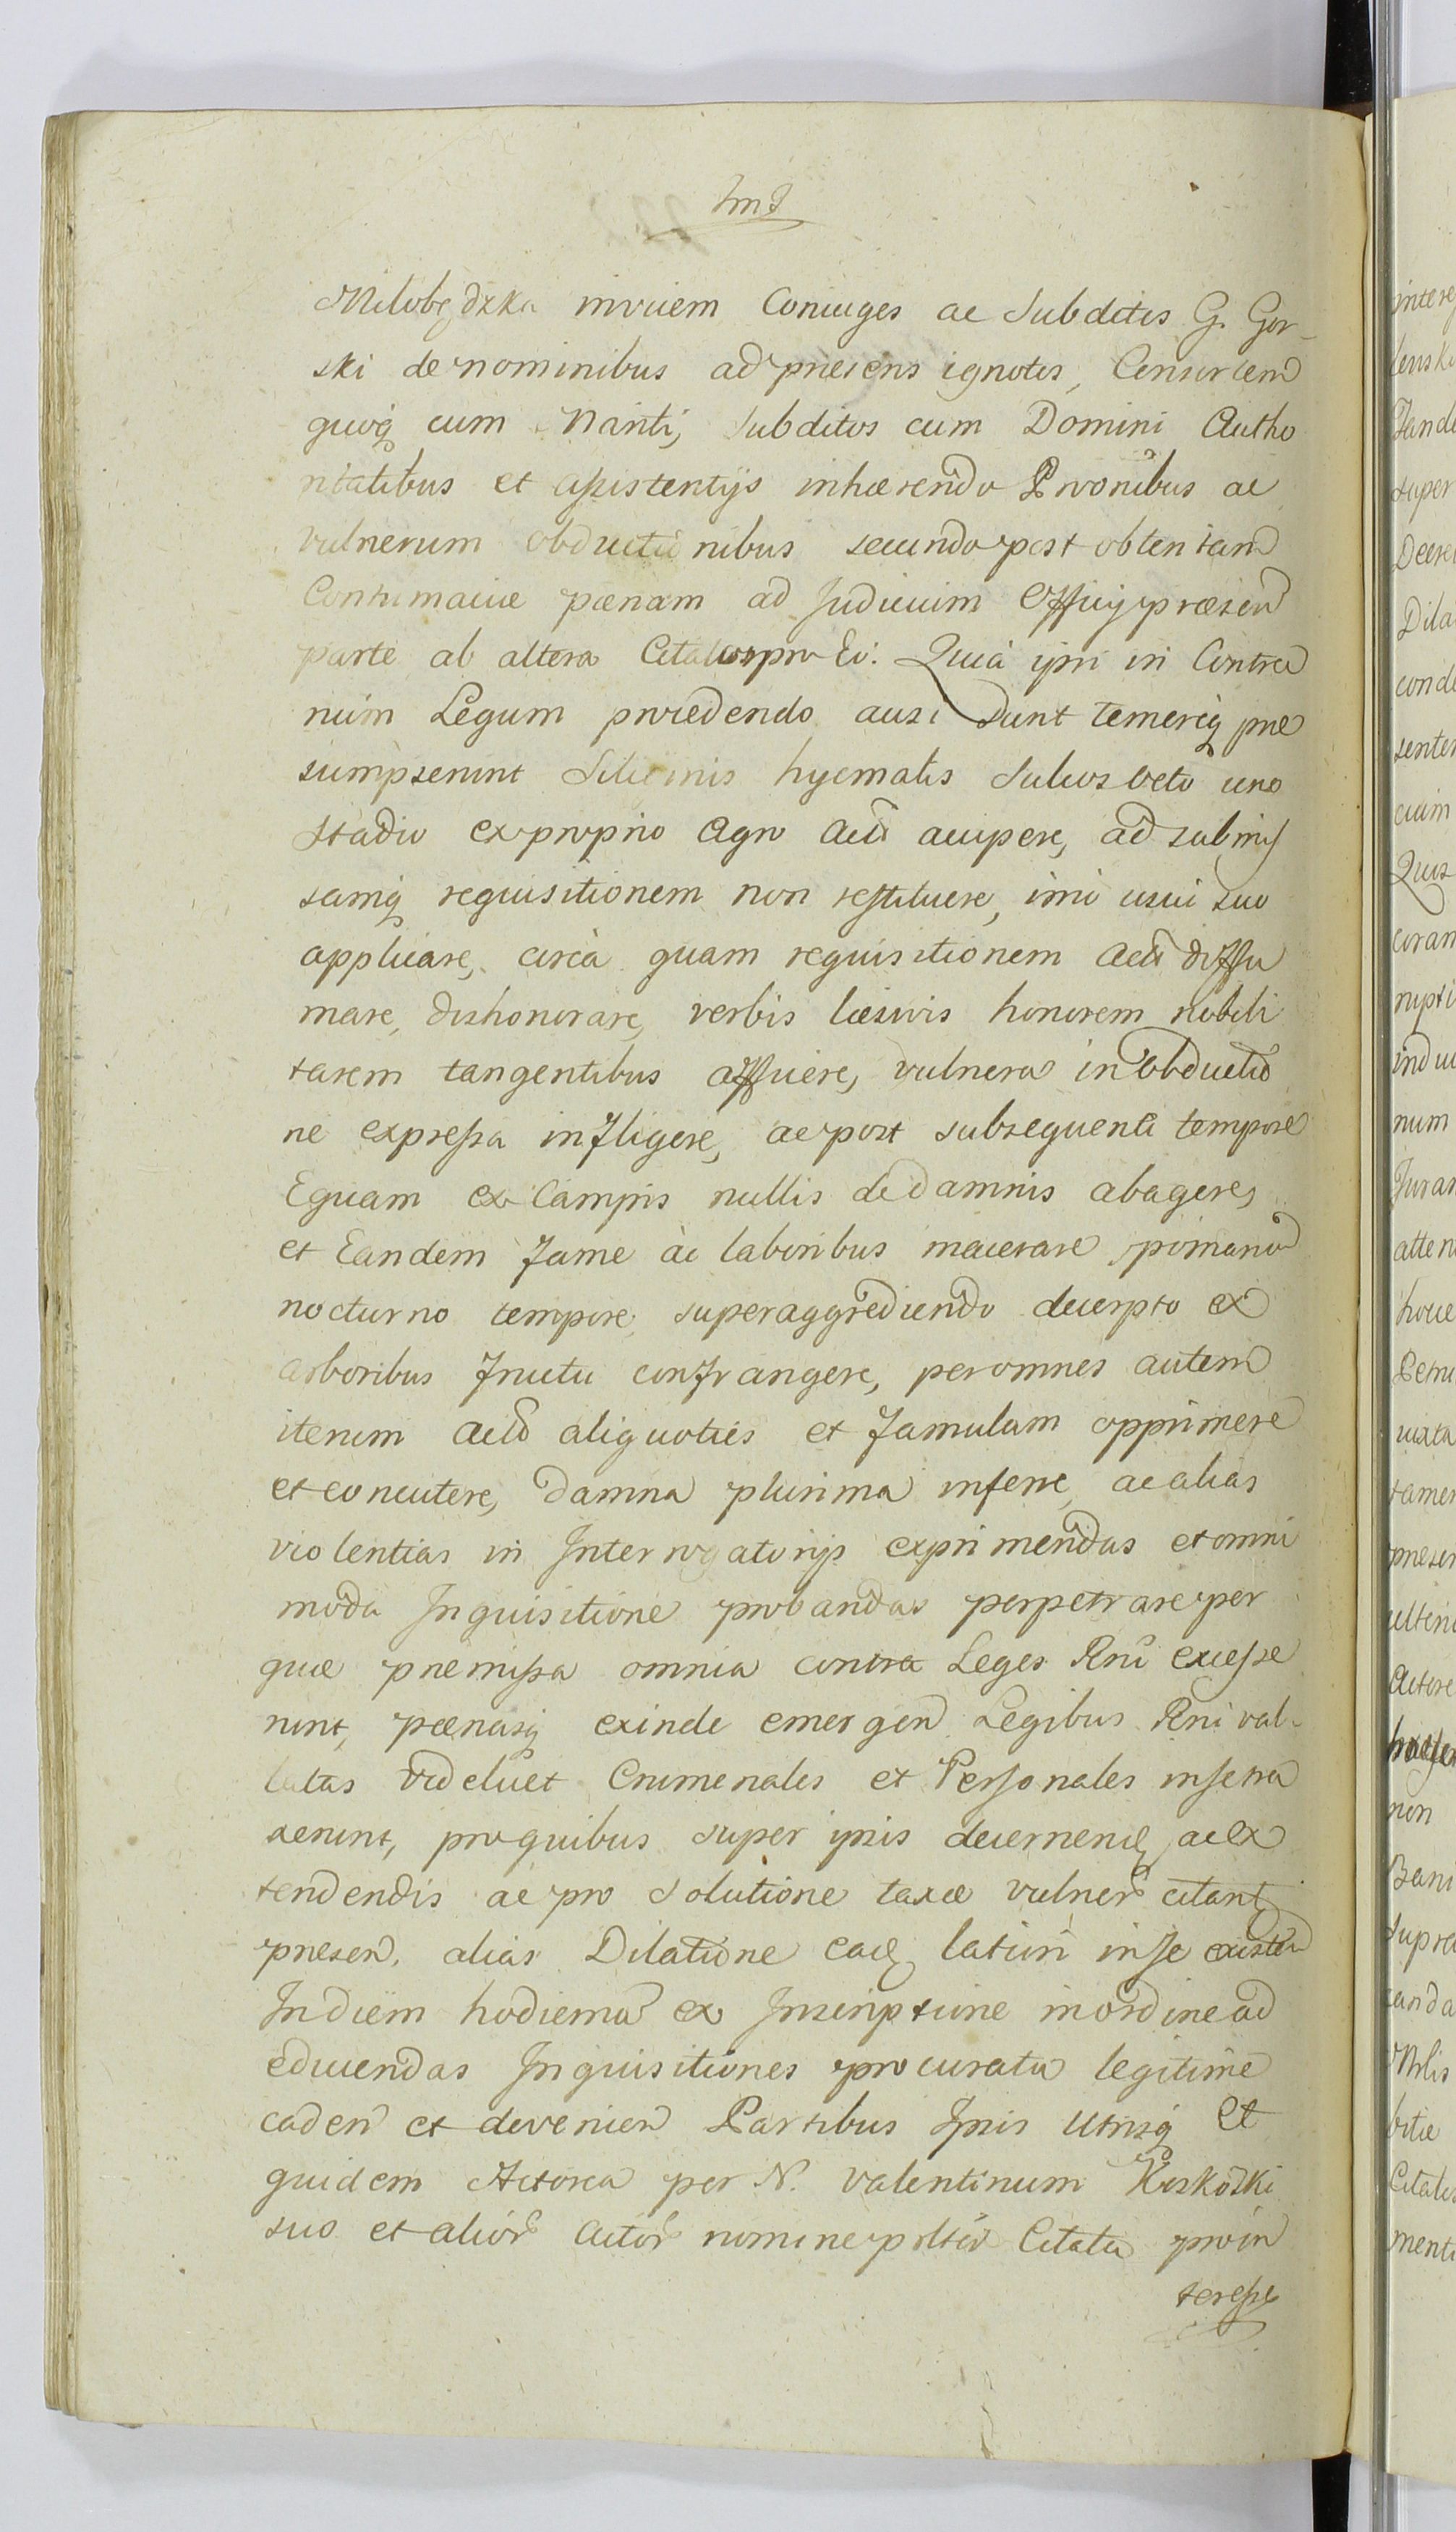 Miłobędzka invicem Coniuges ac Subditis G. Gor-
ski de nominibus ad præsens ignotis, Consortem
quoq cum Mariti, Subditos cum Domini Autho
ritatibus et assistentijs inhærendo Prvōnibus ac
vulnerum obductionibus secundo post obtentam
Contumaciæ pænam ad Judicium Officij præsen
parte ab altera Citatos pro Eo. Quia ipsi in Contra
rium Legum procedendo ausi sunt temereq præ
sumpserunt Siliginis hyemalis Sulcos octo uno
Stadio ex proprio Agro Act accipere, ad submis
samq requisitionem non restituere, imo usui suo
applicare, circa quam requisitionem Act diffa
mare, dishonorare, verbis læsivis honorem nobili
tarem tangentibus afficere, vulnera in obductio
ne expressa infligere, ac post subsequenti tempore
Equam ex Campis nullis de damnis abagere,
et Eandem fame ac laboribus macerare, pomariū
nocturno tempore superaggrediendo decerpto ex
arboribus fructu confrangere, per omnes autem
iterum Act aliquoties et famulam opprimere
et concutere, damna plurima inferre, ac alias
violentias in Interrogatorijs exprimendas et omni
moda Inquisitione probandas perpetrare per
quæ præmissa omnia contra Leges Rni excesse
runt, pænasq exinde emergen Legibus Rni val-
latas videlicet Criminales et Personales in se tra
xerunt, pro quibus super ipsis decernen, ac ex
tendendis ac pro Solutione taxæ vulner citant
præsen. alias Dilatione eade latiori in se existen
In diem hodierna ex Inscriptione in ordine ad
educendas Inquisitiones procurata legitime
caden et devenien Partibus Ipsis utrisq Et
quidem Actorea per N. Valentinum Koskowski
suo et alior Actor nomine Citata pro in
teresse